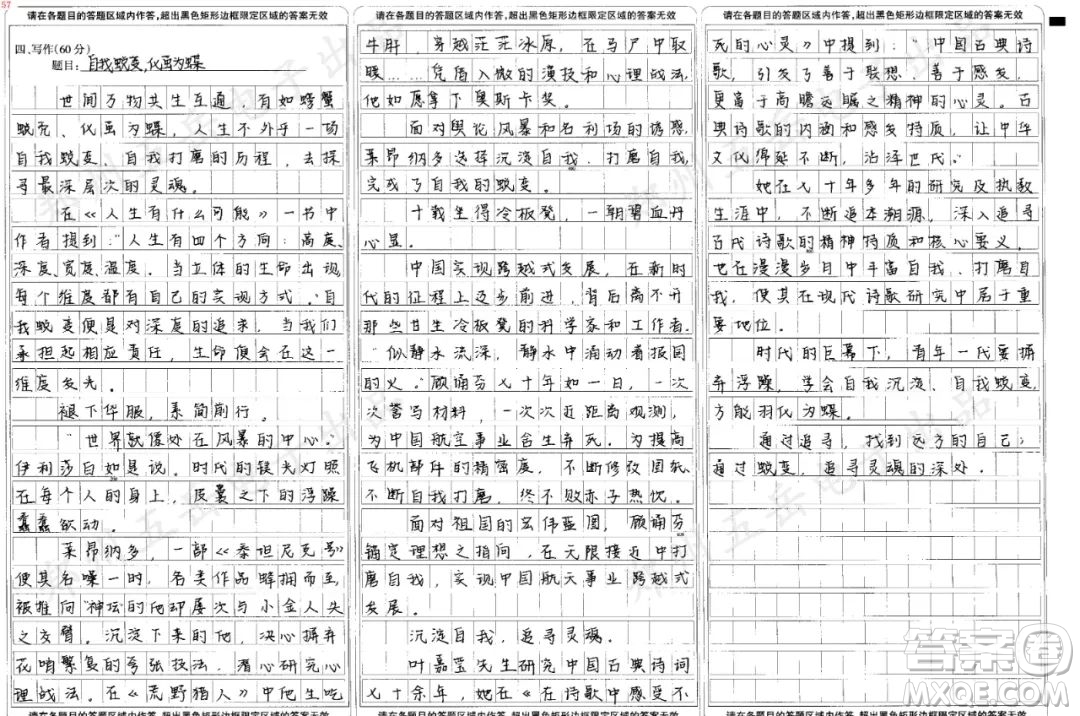 57
请在各题目的答题区域内作答,超出黑色矩形边框限定区域的答案无效
四、写作(60分)
题目:自我蜕变,化茧为蝶
世间万物共生互通,有如螃蟹
蜕壳、化茧为蝶,人生不外乎一场
自我蜕变、自我打磨的历程,去探
寻最深层次的灵魂。
在《人生有什么可能》一书中
作者提到:"人生有四个方向:高度、
深度、宽度、温度。当立体的生命出现,
每个维度都有自己的实现方式。"自
我蜕变便是对深度的追求,当我们
承担起相应责任,生命便会在这一
维度发光。
褪下华服,素简前行。
"世界就像处在风暴的中心。"
伊利莎白如是说。时代的镁光灯照
在每个人的身上,底囊之下的浮躁
蠢蠢欲动。
莱昂纳多,一部《泰坦尼克号》
使其名噪一时,各类作品蜂拥而至,
被推向"神坛的他却屡次与小金人失
之交臂。沉淀下来的他,决心摒弃
花哨繁复的夸张技法,潜心研究心
理战法。在《荒野猎人》中他生吃
请在各题目的答题区域内作答,超出黑色矩形边框限定区域的答案无效
请在各题目的答题区域内作答,超出黑色矩形边框限定区域的答案无效
牛肝,穿越茫茫冰原,在马尸中取
暖……凭借入微的演技和心理战法,
他如愿拿下奥斯卡奖。
面对舆论风暴和名利场的诱惑,
莱昂纳多选择沉淀自我、打磨自我,
完成了自我的蜕变。
十载坐得冷板凳,一朝碧血丹
心显。
中国实现跨越式发展,在新时
代的征程上迈步前进,背后离不开
那些甘坐冷板凳的科学家和工作者。
"似静水流深,静水中涌动着报国
的火。"顾诵芬七十年如一日,一次
次誊写材料,一次次近距离观测,
为中国航空事业舍生弃死。为提高
飞机部件的精密度,不断修改图纸,
不断自我打磨,终不败赤子热忱。
面对祖国的宏伟蓝图,顾诵芬
锚定理想之指向,在无限接近中打
磨自我,实现中国航天事业跨越式
发展。
沉淀自我,追寻灵魂。
叶嘉莹先生研究中国古典诗词
七十余年,她在《在诗歌中感受不
请在各题目的答题区域内作答,超出黑色矩形边框限定区域的答案无效
请在各题目的答题区域内作答,超出黑色矩形边框限定区域的答案无效
死的心灵》中提到:"中国古典诗
歌,引发了善于联想、善于感发、
更富于高瞻远瞩之精神的心灵。古
典诗歌的内涵和感发特质,让中华
文化绵延不断,沾泽巴氏。"
她在七十年多年的研究及执教
生涯中,不断追本溯源,深入追寻
古代诗歌的精神特质和核心要义,
也在漫漫岁月中丰富自我、打磨自
我,使其在现代诗歌研究中居于重
要地位。
时代的巨幕下,青年一代要摒
弃浮躁,学会自我沉淀、自我蜕变,
方能羽化为蝶。
通过追寻,找到远方的自己;
通过蜕变,追寻灵魂的深处。
请在各题目的答题区域内作答,超出黑色矩形边框限定区域的答案无效
答案圈
MXQE.COM